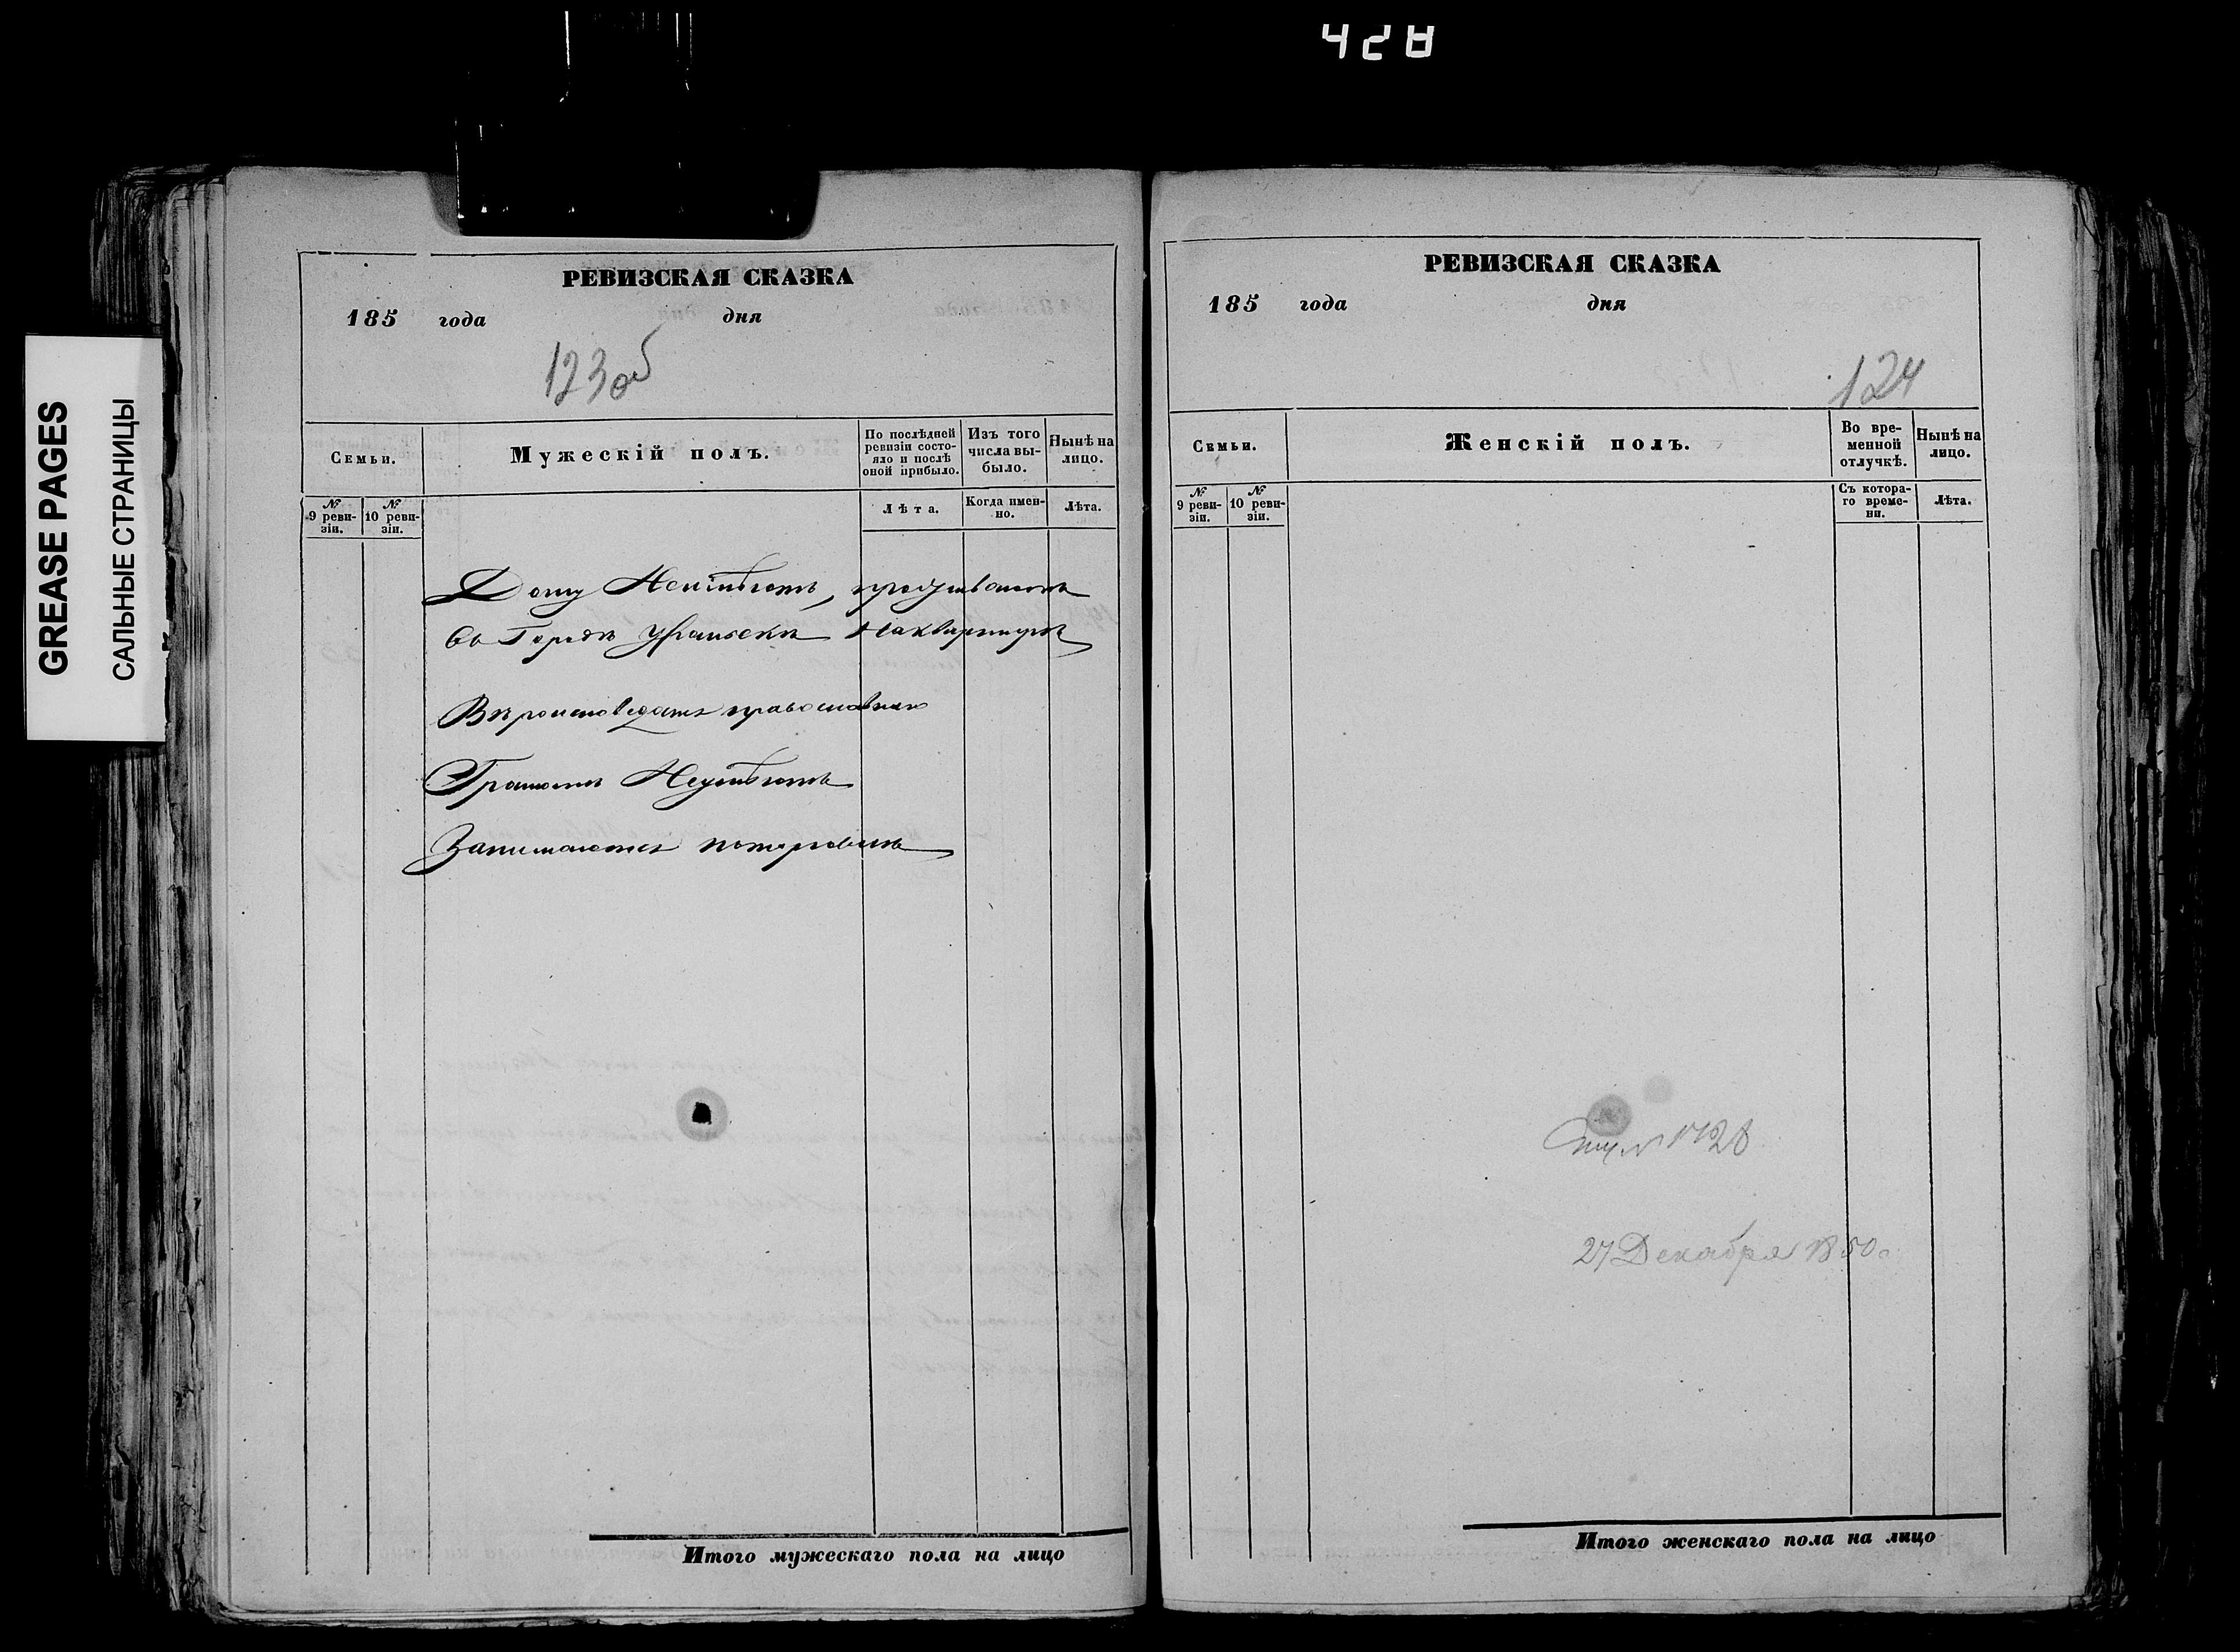 428
GREASE PAGES
САЛЬНЫЕ СТРАНИЦЫ
РЕВИЗСКАЯ СКАЗКА
185 года дня
123об
Семьи.
Мужескій полъ.
По послѣдней ревизіи состояло и послѣ оной прибыло.
Изъ того числа выбыло.
Нынѣ на лицо.
№ 9 ревизіи.
№ 10 ревизіи.
Лѣта.
Когда именно.
Лѣта.
Дому Неимѣютъ, проживаютъ
Въ Городѣ Уральскѣ Наквартирѣ
Вѣроисповеданія православнаго
Грамотѣ Неумѣютъ
Занимаются
Итого мужескаго пола на лицо
РЕВИЗСКАЯ СКАЗКА
185 года дня
124
Семьи.
Женскій полъ.
Во временной отлучкѣ.
Нынѣ на лицо.
№ 9 ревизіи.
№ 10 ревизіи.
Съ котораго времени.
Лѣта.
27 Декабря 1850
Итого женскаго пола на лицо